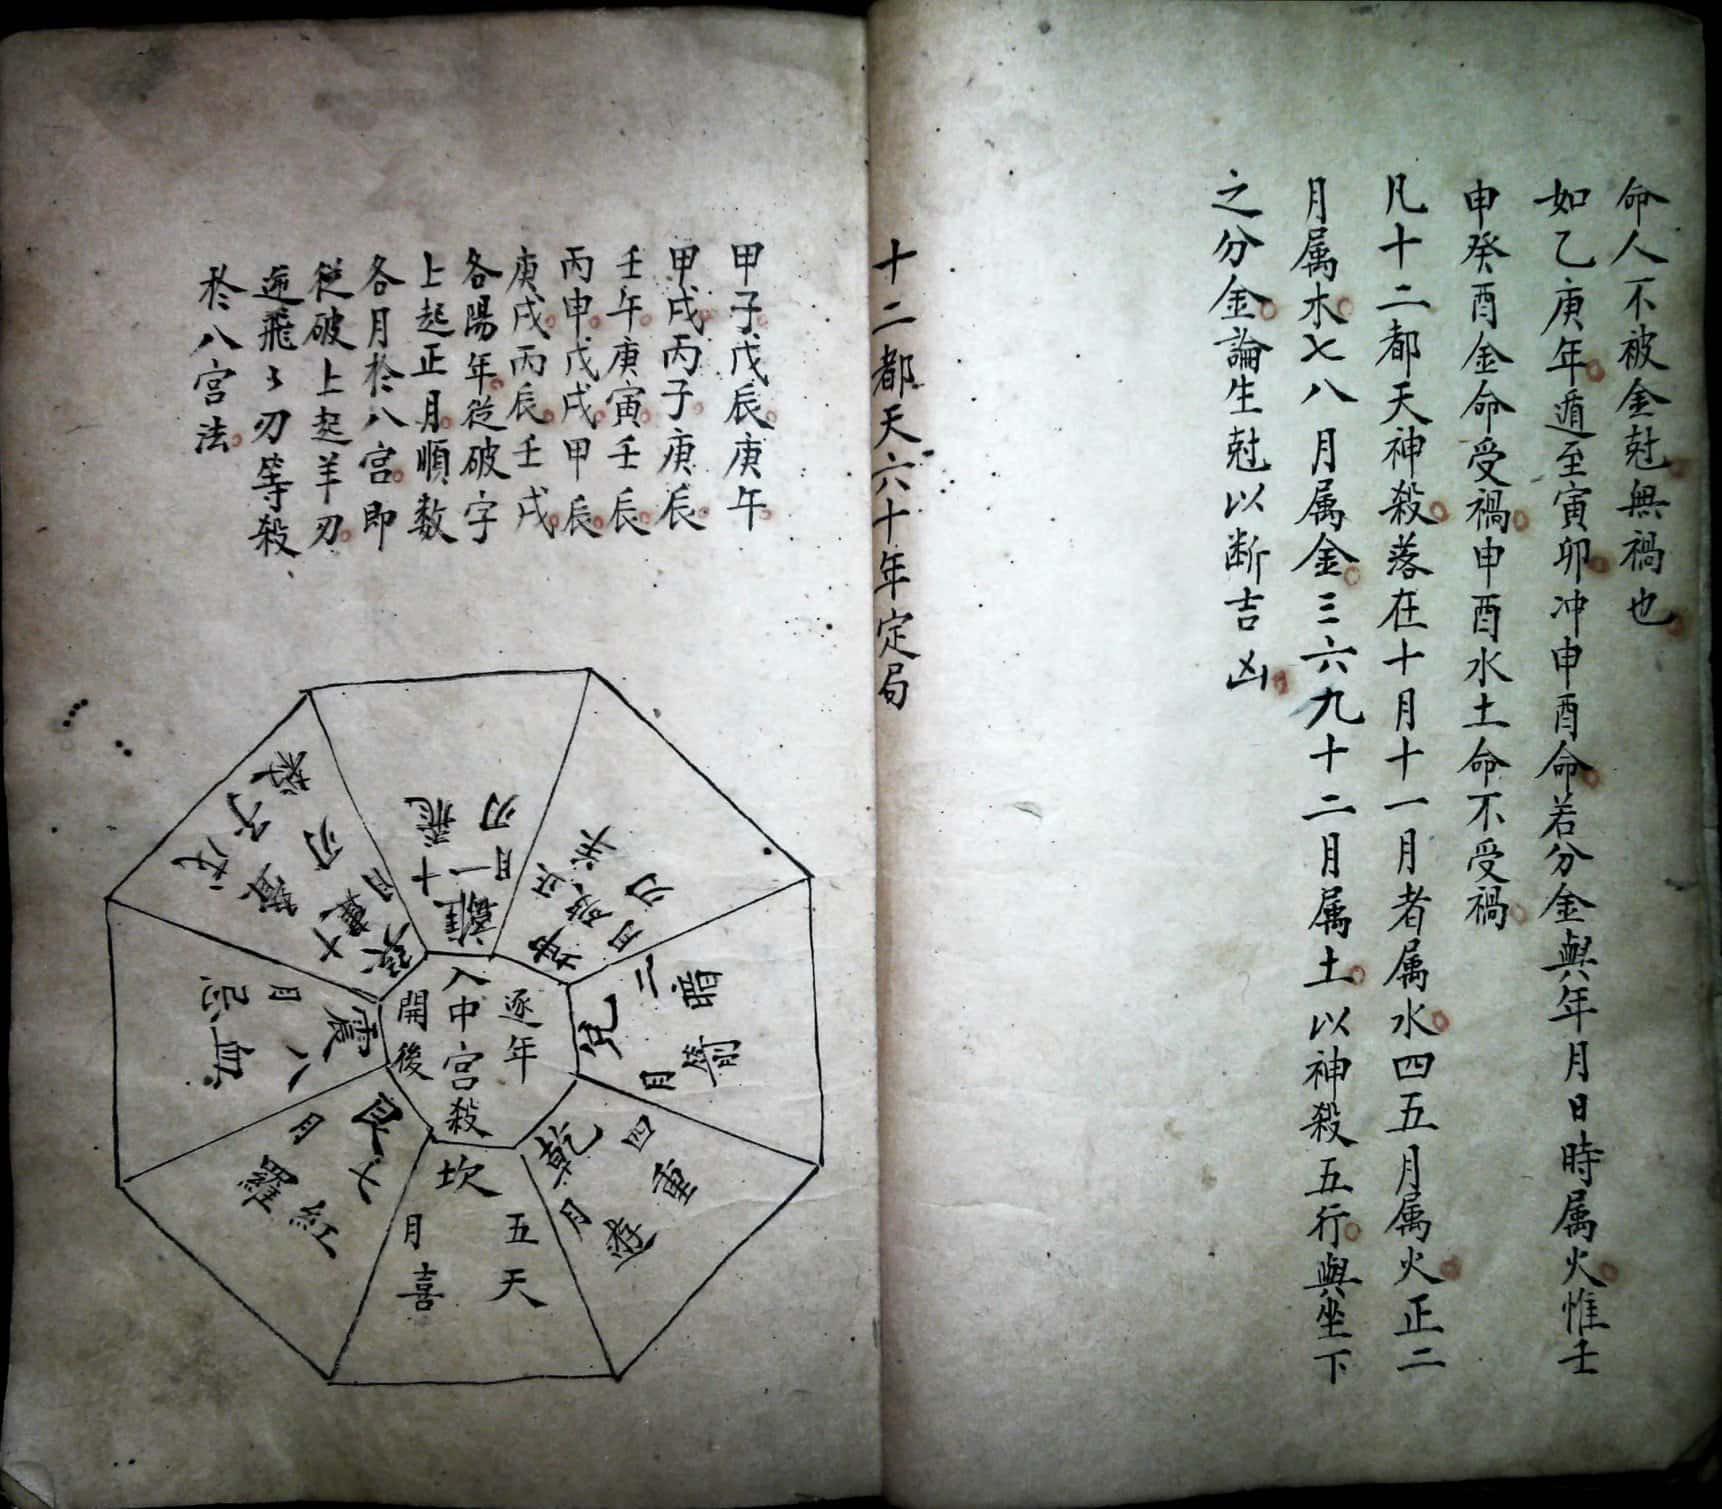 命人不被金尅無禍也
如乙庚年遁至寅卯冲申酉命若分金與年月日時属火惟壬
申癸酉金命受禍申酉水土命不受禍
凡十二都天神殺落在十月十一月者属水四五月属火正二
月属木七八月属金三六九十二月属土以神殺五行與坐下
之分金論生尅以断吉凶
十二都天六十年定局
甲子戊辰庚午
甲戌丙子庚辰
壬午庚寅壬辰
丙申戊戌甲辰
庚戌丙辰壬戌
各陽年従破字
上起正月順数
各月於八宮即
從破上起羊刃
逆飛〻刃等殺
於八宮法
逐年
入中宮殺
開後
離
十一月
飛刃
坤
破正月
羊刃
兌
二月
暗
乾
四月
坎
五月
天喜
艮
七月
紅羅
震
八月
血忌